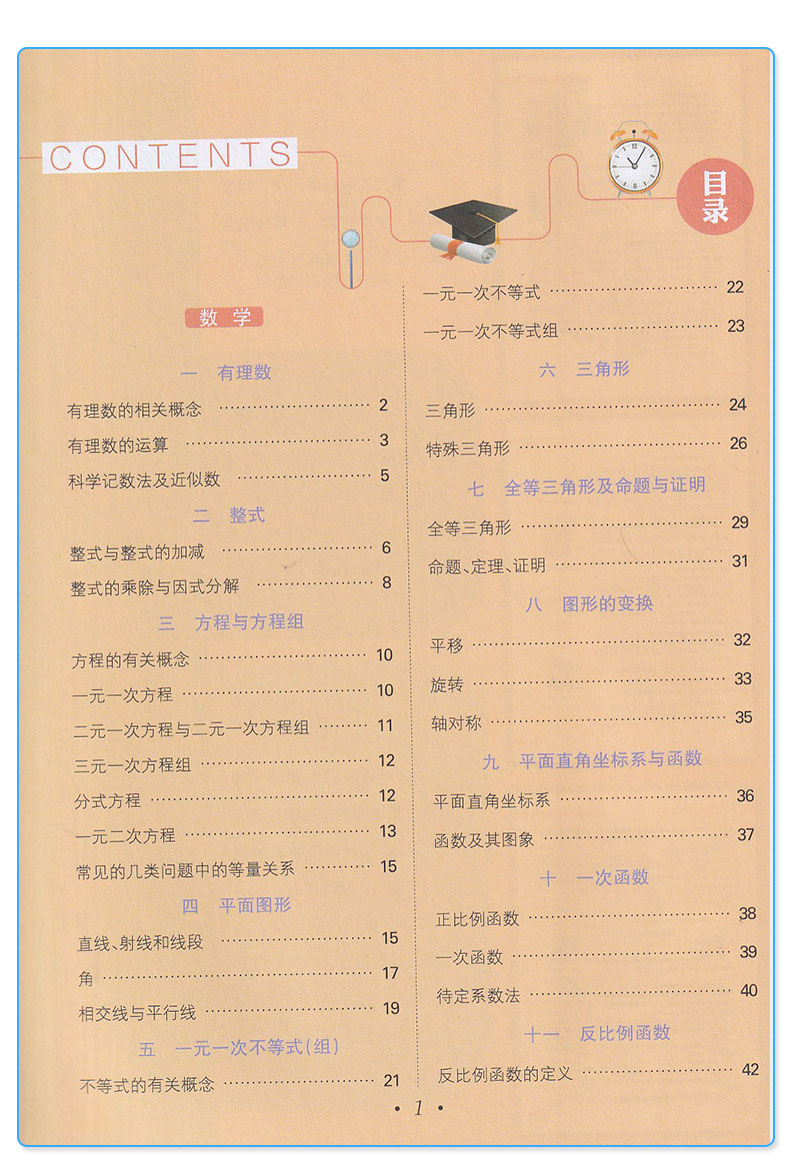 CONTENTS
目录
数学
一 有理数
有理数的相关概念 ························ 2
有理数的运算 ························ 3
科学记数法及近似数 ························ 5
二 整式
整式与整式的加减 ························ 6
整式的乘除与因式分解 ························ 8
三 方程与方程组
方程的有关概念 ························ 10
一元一次方程 ························ 10
二元一次方程与二元一次方程组 ········· 11
三元一次方程组 ························ 12
分式方程 ························ 12
一元二次方程 ························ 13
常见的几类问题中的等量关系 ············ 15
四 平面图形
直线、射线和线段 ························ 15
角 ························ 17
相交线与平行线 ························ 19
五 一元一次不等式(组)
不等式的有关概念 ························ 21
一元一次不等式 ························ 22
一元一次不等式组 ························ 23
六 三角形
三角形 ························ 24
特殊三角形 ························ 26
七 全等三角形及命题与证明
全等三角形 ························ 29
命题、定理、证明 ························ 31
八 图形的变换
平移 ························ 32
旋转 ························ 33
轴对称 ························ 35
九 平面直角坐标系与函数
平面直角坐标系 ························ 36
函数及其图象 ························ 37
十 一次函数
正比例函数 ························ 38
一次函数 ························ 39
待定系数法 ························ 40
十一 反比例函数
反比例函数的定义 ························ 42
• 1 •